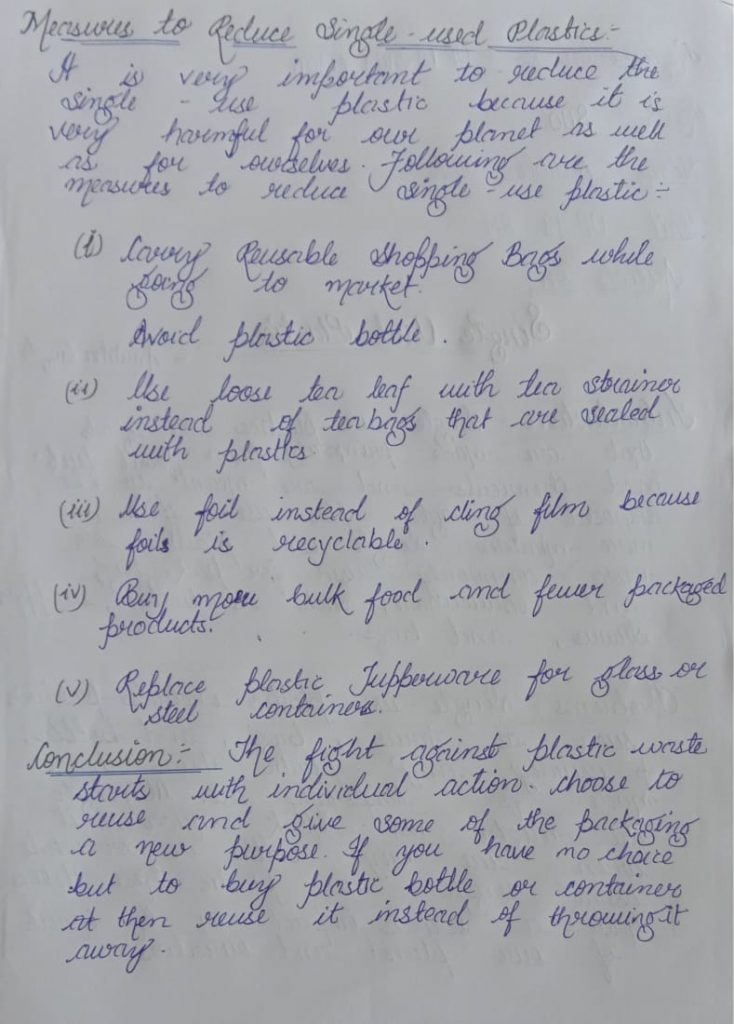 Measures to Reduce Single-used Plastics:-
It is very important to reduce the
single - use plastic because it is
very harmful for our planet as well
as for ourselves. Following are the
measures to reduce single-use plastic:-
(i) Carry Reusable Shopping Bags while
going to market.
Avoid plastic bottle.
(ii) Use loose tea leaf with tea strainer
instead of teabags that are sealed
with plastics
(iii) Use foil instead of cling film because
foils is recyclable.
(iv) Buy more bulk food and fewer packaged
products.
(v) Replace plastic Tupperware for glass or
steel containers.
Conclusion:- The fight against plastic waste
starts with individual action. choose to
reuse and give some of the packaging
a new purpose. If you have no choice
but to buy plastic bottle or container
at then reuse it instead of throwing it
away.